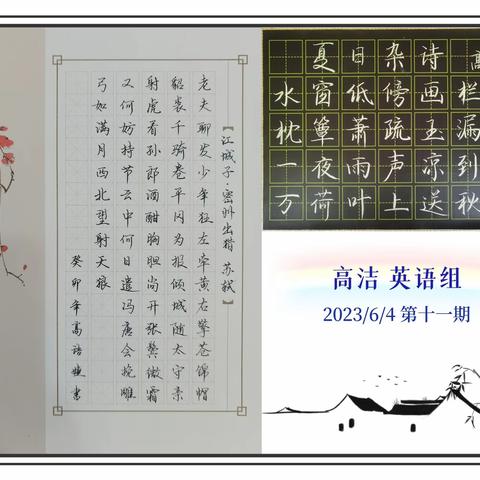 【江城子·密州出猎 苏轼】
老夫聊发少年狂左牵黄右擎苍锦帽
貂裘千骑卷平冈为报倾城随太守亲
射虎看孙郎酒酣胸胆尚开张鬓微霜
又何妨持节云中何日遣冯唐会挽雕
弓如满月西北望射天狼
癸卯年高语婕书
夏日杂诗 高
水窗低傍画栏
枕簟萧疏玉漏
一夜雨声凉到
万荷叶上送秋
高洁 英语组
2023/6/4 第十一期